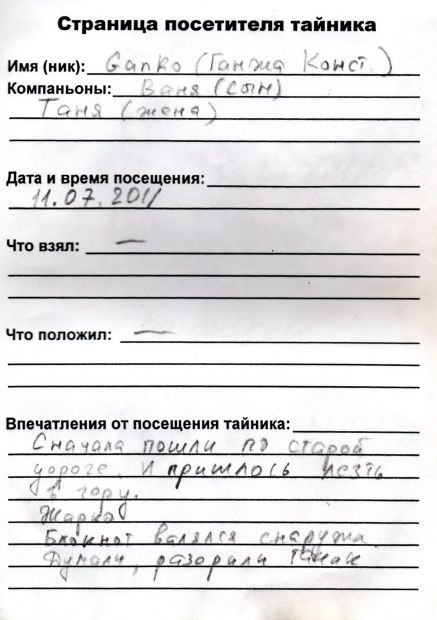 Страница посетителя тайника
Имя (ник): Ganko (Ганжа Конст.)
Компаньоны: Ваня (сын)
Таня (жена)
Дата и время посещения:
11.07.2011
Что взял: —
Что положил: —
Впечатления от посещения тайника:
Сначала пошли по старой
дороге. И пришлось лезть
в гору.
Жарко
Блокнот валялся снаружи.
Думали, разорили тайник